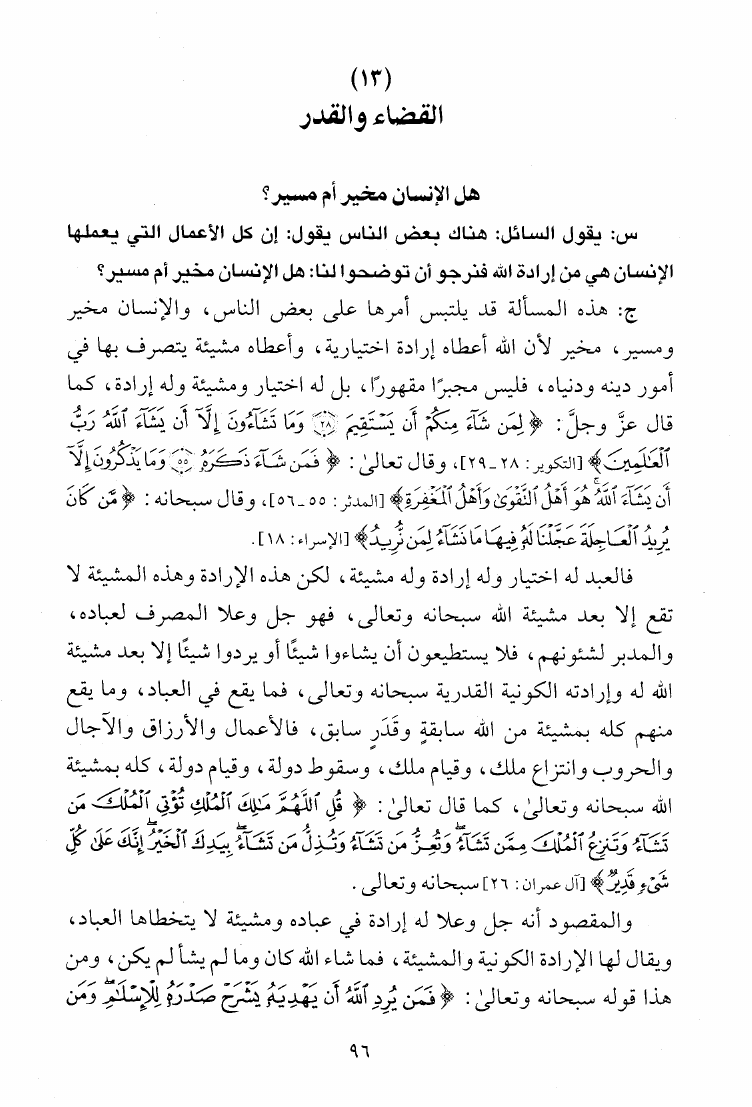 (١٣)
القضاء والقدر
هل الإنسان مخير أم مسير؟
س: يقول السائل: هناك بعض الناس يقول: إن كل الأعمال التي يعملها
الإنسان هي من إرادة الله فنرجو أن توضحوا لنا: هل الإنسان مخير أم مسير؟
ج: هذه المسألة قد يلتبس أمرها على بعض الناس، والإنسان مخير
ومسير، مخير لأن الله أعطاه إرادة اختيارية، وأعطاه مشيئة يتصرف بها في
أمور دينه ودنياه، فليس مجبرًا مقهورًا، بل له اختيار ومشيئة وله إرادة، كما
قال عزَّ وجلَّ: ﴿لِمَن شَآءَ مِنكُمْ أَن يَسْتَقِيمَ ۝٢٨ وَمَا تَشَآءُونَ إِلَّآ أَن يَشَآءَ ٱللَّهُ رَبُّ
ٱلْعَٰلَمِينَ﴾ [التكوير: ٢٨-٢٩]، وقال تعالىٰ: ﴿فَمَن شَآءَ ذَكَرَهُۥ ۝٥٥ وَمَا يَذْكُرُونَ إِلَّآ
أَن يَشَآءَ ٱللَّهُ ۚ هُوَ أَهْلُ ٱلتَّقْوَىٰ وَأَهْلُ ٱلْمَغْفِرَةِ﴾ [المدثر: ٥٥-٥٦]، وقال سبحانه: ﴿مَّن كَانَ
يُرِيدُ ٱلْعَاجِلَةَ عَجَّلْنَا لَهُۥ فِيهَا مَا نَشَآءُ لِمَن نُّرِيدُ﴾ [الإسراء: ١٨].
فالعبد له اختيار وله إرادة وله مشيئة، لكن هذه الإرادة وهذه المشيئة لا
تقع إلا بعد مشيئة الله سبحانه وتعالى، فهو جل وعلا المصرف لعباده،
والمدبر لشئونهم، فلا يستطيعون أن يشاءوا شيئًا أو يردوا شيئًا إلا بعد مشيئة
الله له وإرادته الكونية القدرية سبحانه وتعالى، فما يقع في العباد، وما يقع
منهم كله بمشيئة من الله سابقةٍ وقَدَرٍ سابق، فالأعمال والأرزاق والآجال
والحروب وانتزاع ملك، وقيام ملك، وسقوط دولة، وقيام دولة، كله بمشيئة
الله سبحانه وتعالىٰ، كما قال تعالىٰ: ﴿قُلِ ٱللَّهُمَّ مَٰلِكَ ٱلْمُلْكِ تُؤْتِى ٱلْمُلْكَ مَن
تَشَآءُ وَتَنزِعُ ٱلْمُلْكَ مِمَّن تَشَآءُ وَتُعِزُّ مَن تَشَآءُ وَتُذِلُّ مَن تَشَآءُ ۖ بِيَدِكَ ٱلْخَيْرُ ۖ إِنَّكَ عَلَىٰ كُلِّ
شَىْءٍ قَدِيرٌ﴾ [آل عمران: ٢٦] سبحانه وتعالى.
والمقصود أنه جل وعلا له إرادة في عباده ومشيئة لا يتخطاها العباد،
ويقال لها الإرادة الكونية والمشيئة، فما شاء الله كان وما لم يشأ لم يكن، ومن
هذا قوله سبحانه وتعالىٰ: ﴿فَمَن يُرِدِ ٱللَّهُ أَن يَهْدِيَهُۥ يَشْرَحْ صَدْرَهُۥ لِلْإِسْلَٰمِ ۖ وَمَن
٩٦